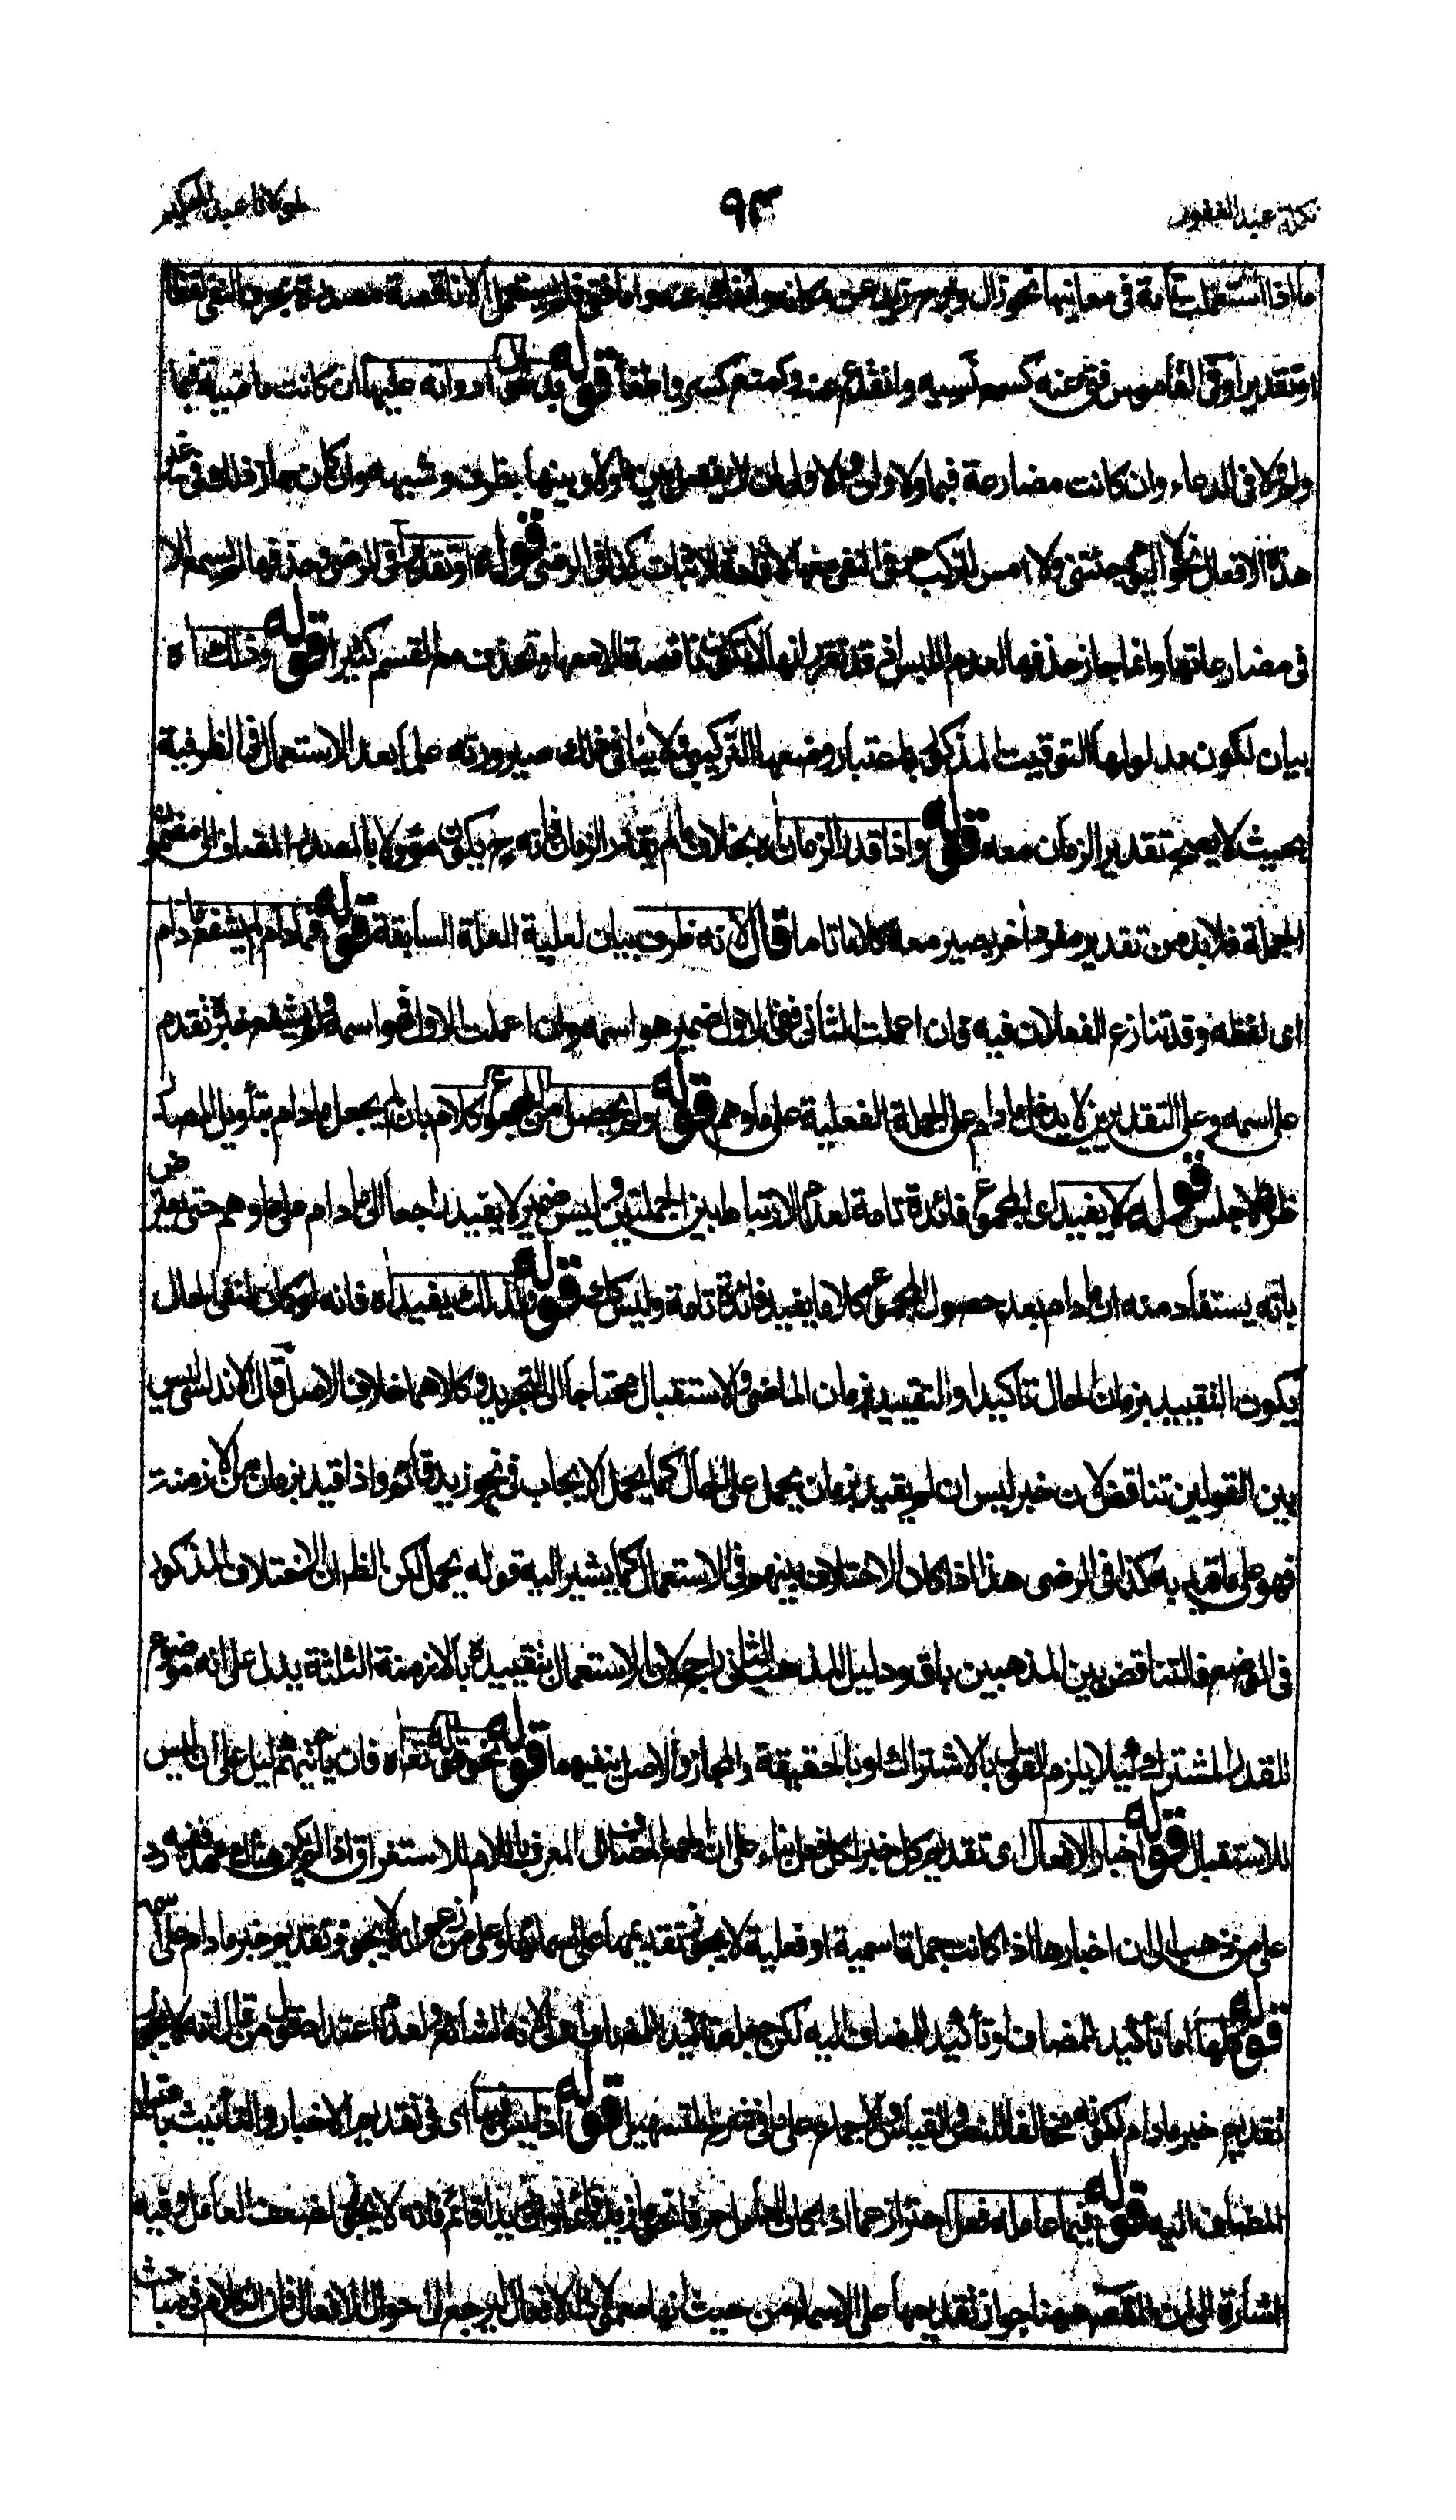 تكملة عبد الغفور ٩٣ لمولانا عبد الحكيم
ما اذا استعملت تامة فى معانيها نحو زال وبرح زيد عن مكانه وانفك عنه واما فتئ فلم يستعمل الا ناقصة مصدرة بحرف النفى لفظا
او تقديرا وفى القاموس فتئ عنه كسمع نسيه وانقدع عنه وكمنع كسر واطفأ قوله بدخول ادواته عليها ان كانت ماضية فبما
ولم ولا فى الدعاء وان كانت مضارعة فبما ولا ولن ولا ولى ان لا يفصل بين ولا وبينها بظرف وشبهه وان كان جاز ذلك فى غير
هذه الافعال نحو لا اليوم جئتنى ولا امس لتركب حرف النفى معها لافادة الاثبات كذا فى الرضى قوله او تقديرا فى الرضى حذفها لم يسمع الا
فى مضارعاتها وانما جاز حذفها لعدم اللبس اذ قد تقرر انها لا تكون ناقصة الا معها وتحذف مع القسم كثيرا قوله وذلك اه
بيان لكون مدلولها التوقيت المذكور باعتبار وضعها التركيبى فلا ينافى ذلك صيرورته علما بعد الاستعمال فى الظرفية
بحيث لا يصح تقدير الزمان معه قوله واذا قدر الزمان اه بخلاف ما لم يقدر الزمان فانه ح يكون مؤولا بالمصدر المضاف الى مضمون
الجملة فلا بد من تقدير مفرد اخر يصير معه كلاما تاما قال لانه ظرف بيان لعلية العلة السابقة قوله فمادام لم يشفع مادام
اى لفظه وقد تنازع الفعلان فيه فان اعملت الثانى ففى الاول ضمير هو اسمه وان اعملت الاول فهو اسمه ولم يشفع خبره تقدم
على اسمه وعلى التقديرين لا يدخل مادام على الجملة الفعلية على ما وهم قوله ولم يحصل من المجموع كلام بان لم يجعل مادام بتأويل المصدر
ظرفا لاجلس قوله لا يفيد اى المجموع فائدة تامة لعدم الارتباط بين الجملتين وليس ضمير لا يفيد راجعا الى مادام على ما وهم حتى يعترض
بانه يستفاد منه ان مادام بعد حصول المجموع كلاما يفيد فائدة تامة وليس كذلك قوله ولذلك يفيد اه فانه لو كان لنفى الحال
يكون التقييد بزمان الحال تاكيدا والتقييد بزمان الماضى والاستقبال محتاجا الى التجريد وكلاهما خلاف الاصل قال الاندلسى ليس
بين القولين تناقض لان خبر ليس ان لم يقيد بزمان يحمل على الحال كما يحمل الايجاب فى نحو زيد قائم واذا قيد بزمان من الازمنة
فهو على ما قيد به كذا فى الرضى هذا اذا كان الاختلاف بينهم فى الاستعمال كما يشير اليه قوله يحمل لكن الظ ان الاختلاف المذكور
فى الوضع فالتناقض بين المذهبين باق ودليل المذهب الثانى راجح لان الاستعمال بتقييده بالازمنة الثلثة يدل على انه موضوع
للقدر المشترك لئلا يلزم القول بالاشتراك او بالحقيقة والمجاز والاصل ينفيهما قوله نحو قوله تعالى اه فان يأتيهم دليل على ان ليس
للاستقبال قوله اخبار الافعال اى تقديم كل خبر لكل فعل بناء على ان الجمع المضاف الى المعرف باللام للاستغراق اذا لم يكن هناك عهد ففيه رد
على من ذهب الى ان اخبارها اذا كانت جملة اسمية او فعلية لا يجوز تقديمها على اسمائها وعلى من زعم انه لا يجوز تقديم خبر مادام على اسمه
قوله كلها اما تأكيد المضاف او تأكيد المضاف اليه لكن جعله تاكيد المضاف اولى لانه الشائع ولعدم اعتداد قول من قال انه لا يجوز
تقديم خبر مادام لكونه مخالفا للنص والقياس والاجماع على ما فى شرح التسهيل قوله اذ ليس فيها اى فى تقديم الاخبار والتأنيث باعتبار
المضاف اليه قوله فيما عامله فعل احتراز عما اذا كان العامل حرفا نحو ما زيد قائما وان زيدا قائم فانه لا يجوز لضعف العامل وفيه
اشارة الى ان المقصود ههنا جواز تقديمها على الاسماء من حيث انها معمولة للافعال ليرجع الى احوال الافعال فان الكلام فى مباحث